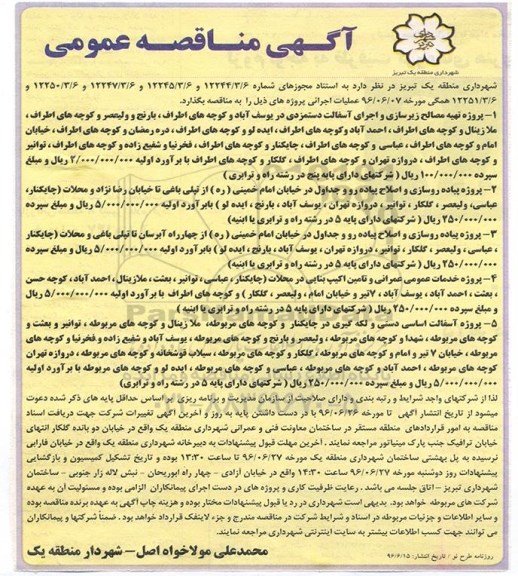 آگهی مناقصه عمومی
شهرداری منطقه یک تبریز
شهرداری منطقه یک تبریز در نظر دارد به استناد مجوزهای شماره ۱۲۲۴۴/۳/۶ و ۱۲۲۴۵/۳/۶ و ۱۲۲۴۷/۳/۶ و ۱۲۲۵۰/۳/۶ و
۱۲۲۵۱/۳/۶ همگی مورخه ۹۶/۰۶/۰۷ عملیات اجرائی پروژه های ذیل را به مناقصه بگذارد.
۱- پروژه تهیه مصالح زیرسازی و اجرای آسفالت دستمزدی در یوسف آباد و کوچه های اطراف، بارنج و ولیعصر و کوچه های اطراف،
ملا زینال و کوچه های اطراف، احمد آباد وکوچه های اطراف، ایده لو و کوچه های اطراف، دره رمضان و کوچه های اطراف، خیابان
امام و کوچه های اطراف، عباسی و کوچه های اطراف، چایکنار و کوچه های اطراف، فخرنیا و شفیع زاده و کوچه های اطراف، توانیر
و کوچه های اطراف، دروازه تهران و کوچه های اطراف، گلکار و کوچه های اطراف با برآورد اولیه ۲/۰۰۰/۰۰۰/۰۰۰ ریال و مبلغ
سپرده ۱۰۰/۰۰۰/۰۰۰ ریال ( شرکتهای دارای پایه پنج در رشته راه و ترابری )
۲- پروژه پیاده روسازی و اصلاح پیاده رو و جداول در خیابان امام خمینی ( ره ) از تپلی باغی تا خیابان رضا نژاد و محلات (چایکنار،
عباسی، ولیعصر، گلکار، توانیر، دروازه تهران، یوسف آباد، بارنج، ایده لو ) بابرآورد اولیه ۵/۰۰۰/۰۰۰/۰۰۰ ریال و مبلغ سپرده
۲۵۰/۰۰۰/۰۰۰ ریال ( شرکتهای دارای پایه ۵ در رشته راه و ترابری یا ابنیه)
۳- پروژه پیاده روسازی و اصلاح پیاده رو و جداول در خیابان امام خمینی ( ره ) از چهارراه آبرسان تا تپلی باغی و محلات (چایکنار
، عباسی، ولیعصر، گلکار، توانیر، دروازه تهران، یوسف آباد، بارنج، ایده لو ) بابرآورد اولیه ۵/۰۰۰/۰۰۰/۰۰۰ ریال و مبلغ سپرده
۲۵۰/۰۰۰/۰۰۰ ریال ( شرکتهای دارای پایه ۵ در رشته راه و ترابری یا ابنیه)
۴- پروژه خدمات عمومی عمرانی و تامین اکیپ بنایی در محلات (چایکنار، عباسی، توانیر، بعثت، ملازینال، احمد آباد، کوچه حسن
، بعثت، احمد آباد، یوسف آباد، ۷تیر و خیابان امام، ولیعصر، گلکار ) و کوچه های اطراف با برآورد اولیه ۵/۰۰۰/۰۰۰/۰۰۰ ریال
و مبلغ سپرده ۲۵۰/۰۰۰/۰۰۰ ریال ( شرکتهای دارای پایه ۵ در رشته راه و ترابری یا ابنیه )
۵- پروژه آسفالت اساسی دستی و لکه گیری در چایکنار و کوچه های مربوطه، ملا زینال و کوچه های مربوطه، توانیر و بعثت و
کوچه های مربوطه، شهدا و کوچه های مربوطه، ولیعصر وبارنج و کوچه های مربوطه، یوسف آباد و شفیع زاده و فخرنیا و کوچه های
مربوطه، خیابان ۷ تیر و امام و کوچه های مربوطه، گلکار و کوچه های مربوطه، سیلاب قوشخانه و کوچه های مربوطه، دروازه تهران
و کوچه های مربوطه، احمد آباد و کوچه های مربوطه، عباسی و کوچه های مربوطه، ایده لو و کوچه های مربوطه با برآورد اولیه
۵/۰۰۰/۰۰۰/۰۰۰ ریال و مبلغ سپرده ۲۵۰/۰۰۰/۰۰۰ ریال ( شرکتهای دارای پایه ۵ در رشته راه و ترابری)
لذا از شرکتهای واجد شرایط و رتبه بندی و دارای صلاحیت از سازمان مدیریت و برنامه ریزی بر اساس حداقل پایه های ذکر شده دعوت
میشود از تاریخ انتشار آگهی تا مورخه ۹۶/۰۶/۲۶ با در دست داشتن پایه و رتبه و آخرین آگهی تغییرات شرکت جهت دریافت اسناد
مناقصه به امور قراردادهای منطقه مستقر در ساختمان معاونت فنی و عمرانی شهرداری منطقه یک واقع در خیابان دو بانده گلکار انتهای
خیابان ترافیک جنب پارک مینیاتور مراجعه نمایند. آخرین مهلت قبول پیشنهادات به دبیرخانه شهرداری منطقه یک واقع در خیابان فارابی
نرسیده به پل بهشتی ساختمان شهرداری منطقه یک مورخه ۹۶/۰۶/۲۷ تا ساعت ۱۳:۳۰ بوده و تاریخ تشکیل کمیسیون و بازگشایی
پیشنهادات روز دوشنبه مورخه ۹۶/۰۶/۲۷ ساعت ۱۴:۳۰ واقع در خیابان آزادی - چهار راه ابوریحان - نبش لاله زار جنوبی - ساختمان
شهرداری تبریز - اتاق جلسه می باشد. رعایت ظرفیت کاری و پروژه های در دست اجرای پیمانکاران الزامی بوده و مسئولیت آن به عهده
شرکت های مربوطه خواهد بود. بدیهی است شهرداری در رد یا قبول پیشنهادات مختار بوده و هزینه چاپ آگهی به عهده برنده مناقصه بوده
و سایر اطلاعات و جزئیات مربوطه در اسناد و شرایط شرکت در مناقصه مندرج و جزء لاینفک قرارداد خواهد بود. ضمناً شرکتها و پیمانکاران
می توانند جهت کسب اطلاعات بیشتر به سایت اینترنتی شهرداری مراجعه نمایند.
محمدعلی مولاخواه اصل - شهردار منطقه یک
روزنامه طرح نو / تاریخ انتشار: ۹۶/۶/۱۵